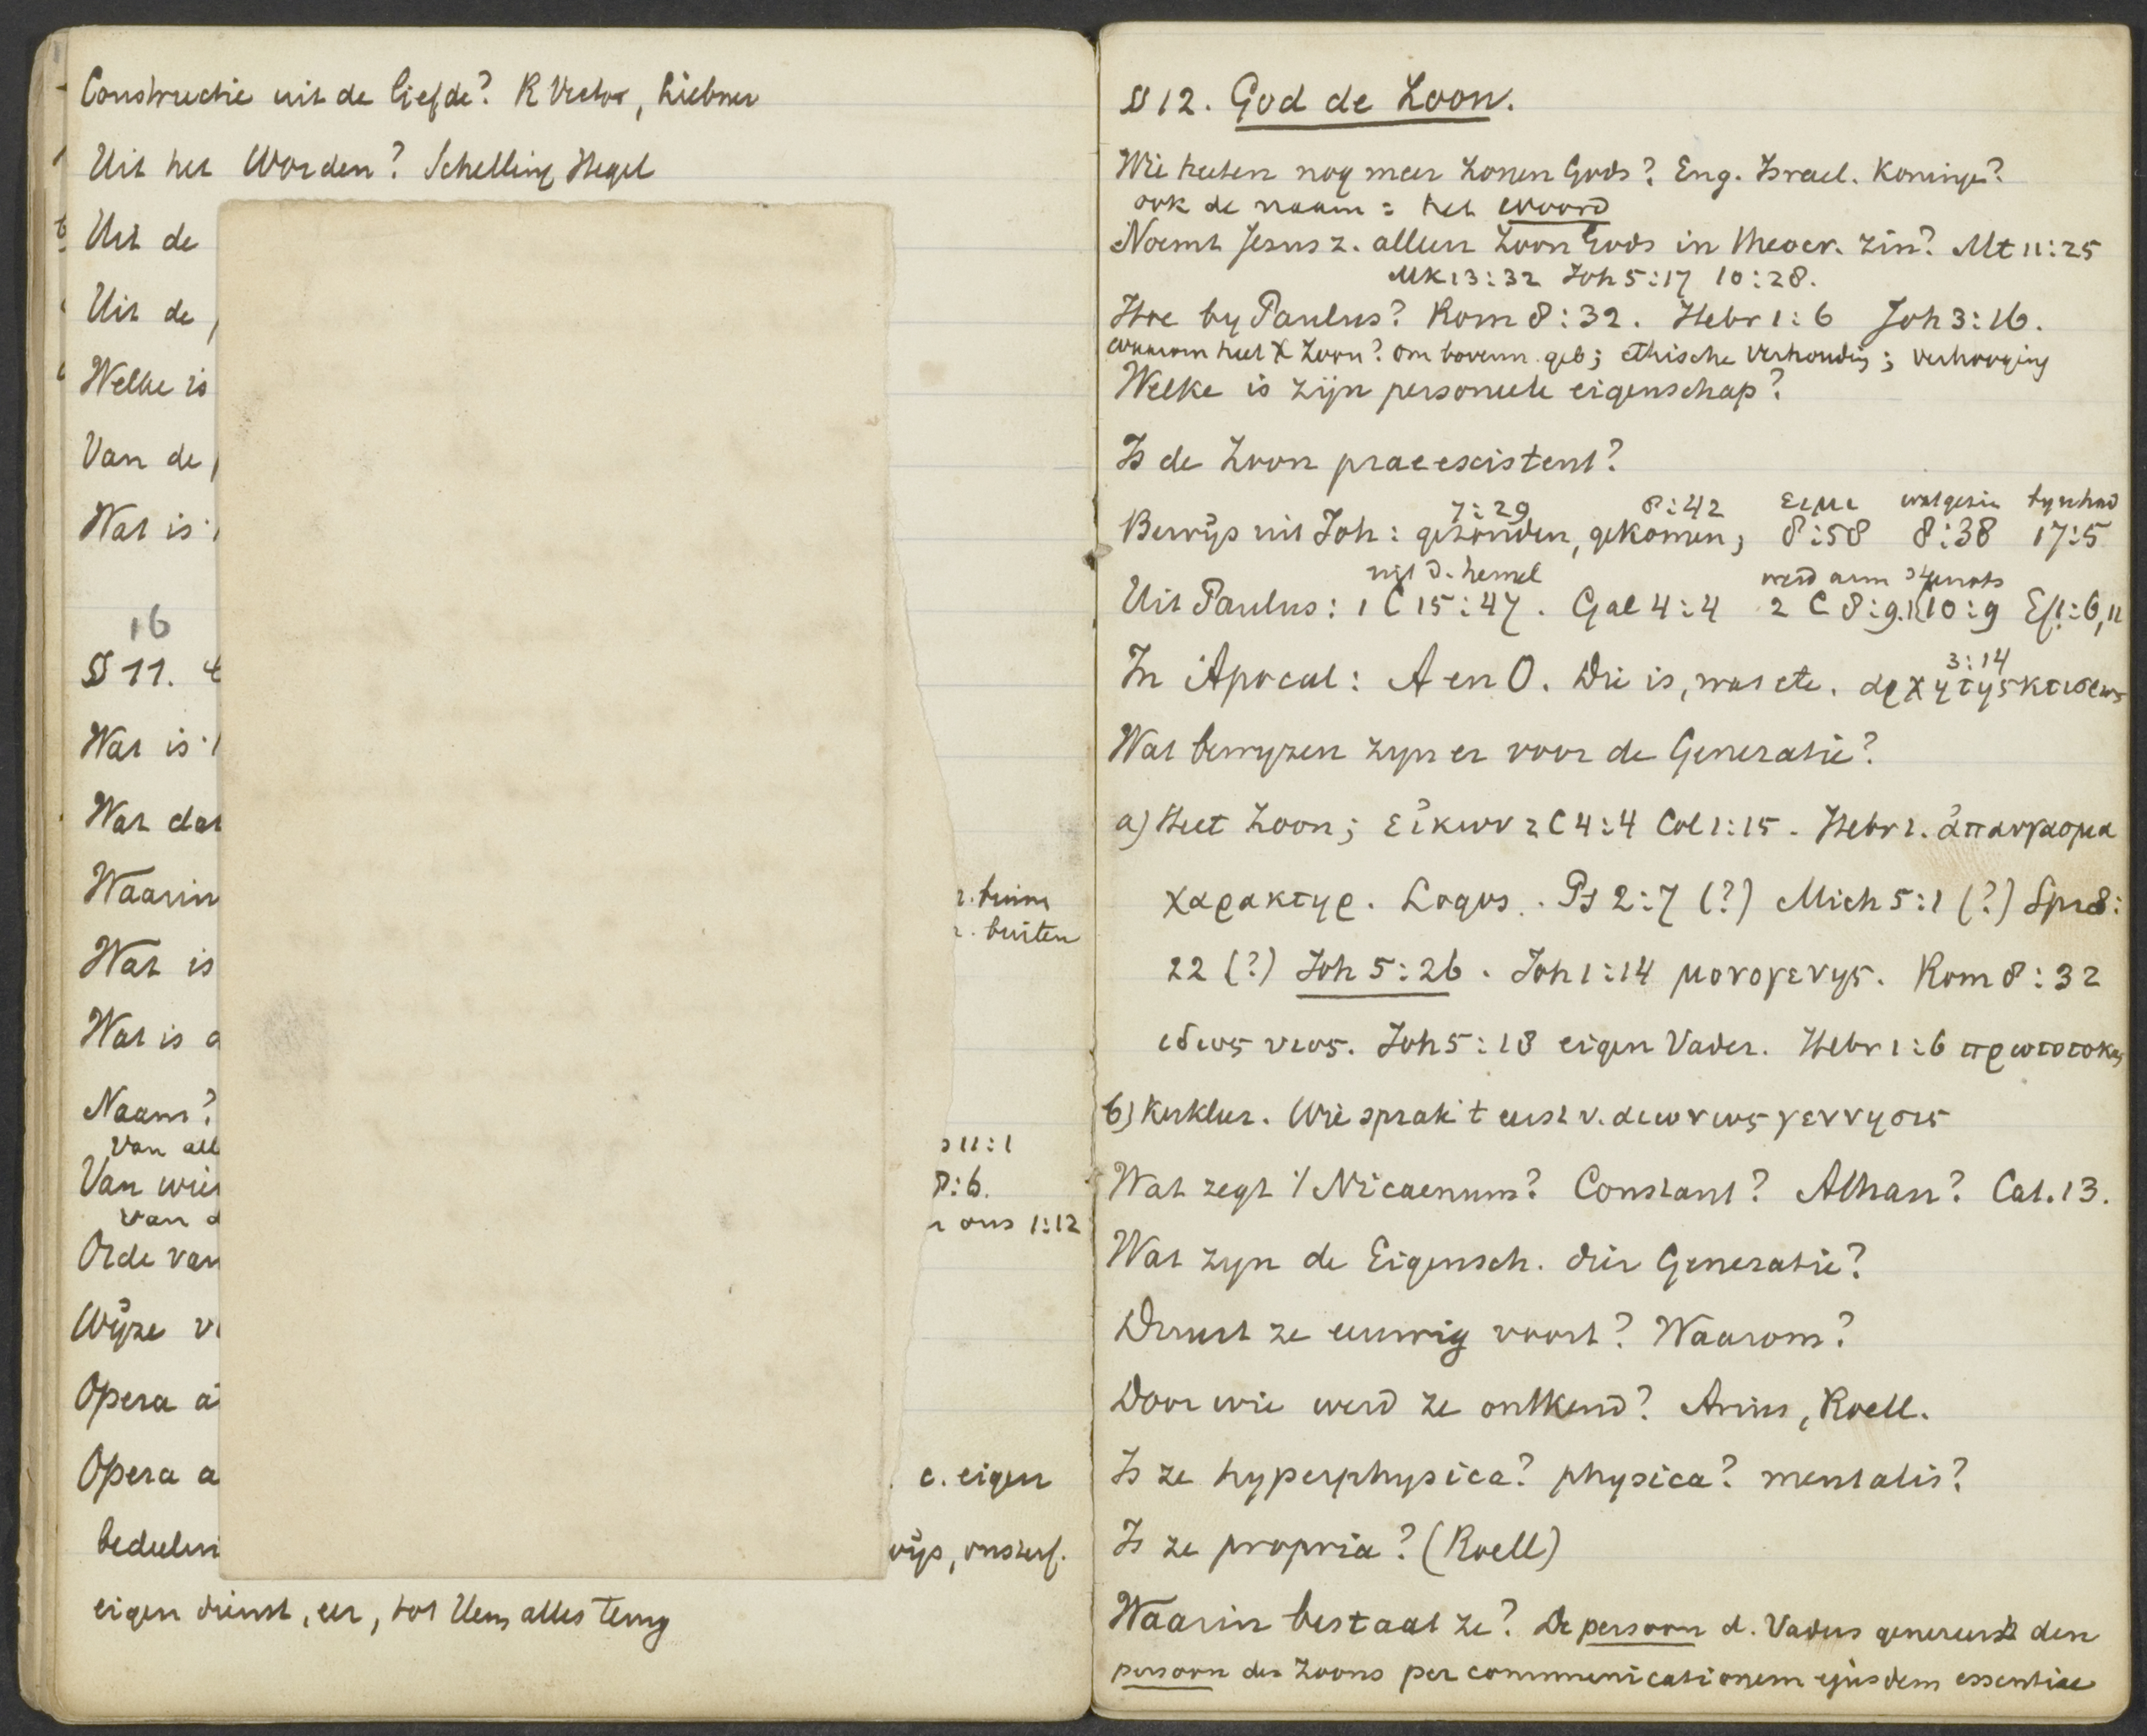 Constructie uit de liefde? R Victor, Liebner
Uit het Worden? Schelling Hegel
Uit de
Uit de
Welke is
Van de
Wat is
16
§ 11.
Wat is
Wat dat
Waarin
r. binnen
r. buiten
Wat is
Wat is
Naam?
Van all
11:1
Van wien
8:6.
Van d
ons 1:12
Orde van
Wijze v
Opera a
Opera a
c. eigen
bedeelin
wijs, onsterf.
eigen dienst, eer, tot Hem alles terug
§ 12. God de Zoon.
Wie heeten nog meer Zonen Gods? Eng. Israel. Koningen?
ook de naam = het woord
Noemt Jesus z. alleen Zoon Gods in theocr. zin? Mt 11:25
Mk 13:32 Joh 5:17 10:28.
Hoe by Paulus? Rom 8:32. Hebr 1:6 Joh 3:16.
waarom heet X Zoon? om bovenn. geb; ethische verhouding; verhooging
Welke is zijn personeele eigenschap?
Is de Zoon praeexistent?
7:29 8:42 ειμι wat gezien by n had
Bewijs uit Joh: gezonden, gekomen; 8:58 8:38 17:5
uit d. hemel werd arm
Uit Paulus: 1 C 15:47. Gal 4:4 2 C 8:9. 10:9 Ef 1:6,11
3:14
In Apocal: A en O. Die is, was etc. αρχη της κτισεως
Wat bewyzen zyn er voor de Generatie?
a) Heet Zoon; εἰκων 2 C 4:4 Col 1:15. Hebr 1. ἀπαυγασμα
χαρακτηρ. Logos. Ps 2:7 (?) Mich 5:1 (?) Spr 8:
22 (?) Joh 5:26. Joh 1:14 μονογενης. Rom 8:32
ιδιος υιος. Joh 5:18 eigen Vader. Hebr 1:6 πρωτοτοκος
b) Kerkleer. Wie sprak 't eerst v. αιωνιος γεννησις
Wat zegt 't Nicaenum? Constant? Athan? Cat. 13.
Wat zyn de Eigensch. dier Generatie?
Duurt ze eeuwig voort? Waarom?
Door wie werd ze ontkend? Arius, Roell.
Is ze hyperphysica? physica? mentalis?
Is ze propria? (Roell)
Waarin bestaat ze? De persoon d. Vaders genereert den
persoon des Zoons per communicationem ejusdem essentiae